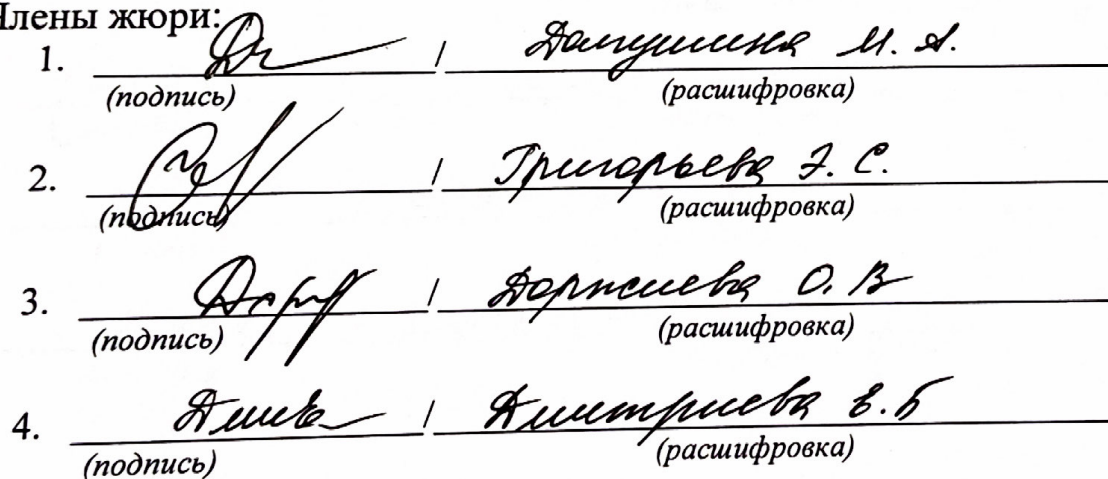 Члены жюри:
1. / Долгушина М. А.
(подпись) (расшифровка)
2. / Григорьева Э. С.
(подпись) (расшифровка)
3. / Доржиева О. В
(подпись) (расшифровка)
4. / Дмитриева Е. Б
(подпись) (расшифровка)